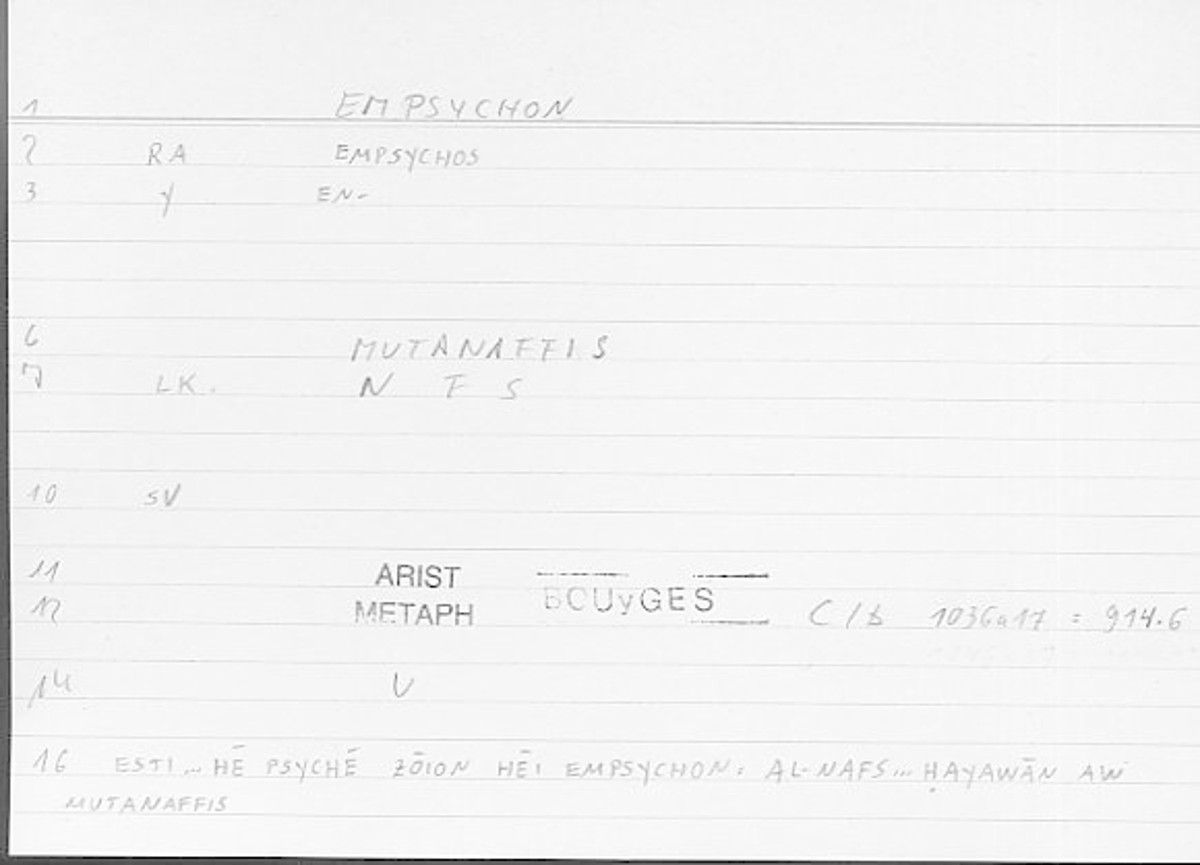 1 EMPSYCHON
2 RA EMPSYCHOS
3 y EN-
6 MUTANAFFIS
7 LK. N F S
10 SV
11 ARIST
12 METAPH BOUyGES C/b 1036a17 = 914.6
14 U
16 ESTI... HĒ PSYCHĒ ZŌION HĒI EMPSYCHON: AL-NAFS... ḤAYAWĀN AW
MUTANAFFIS